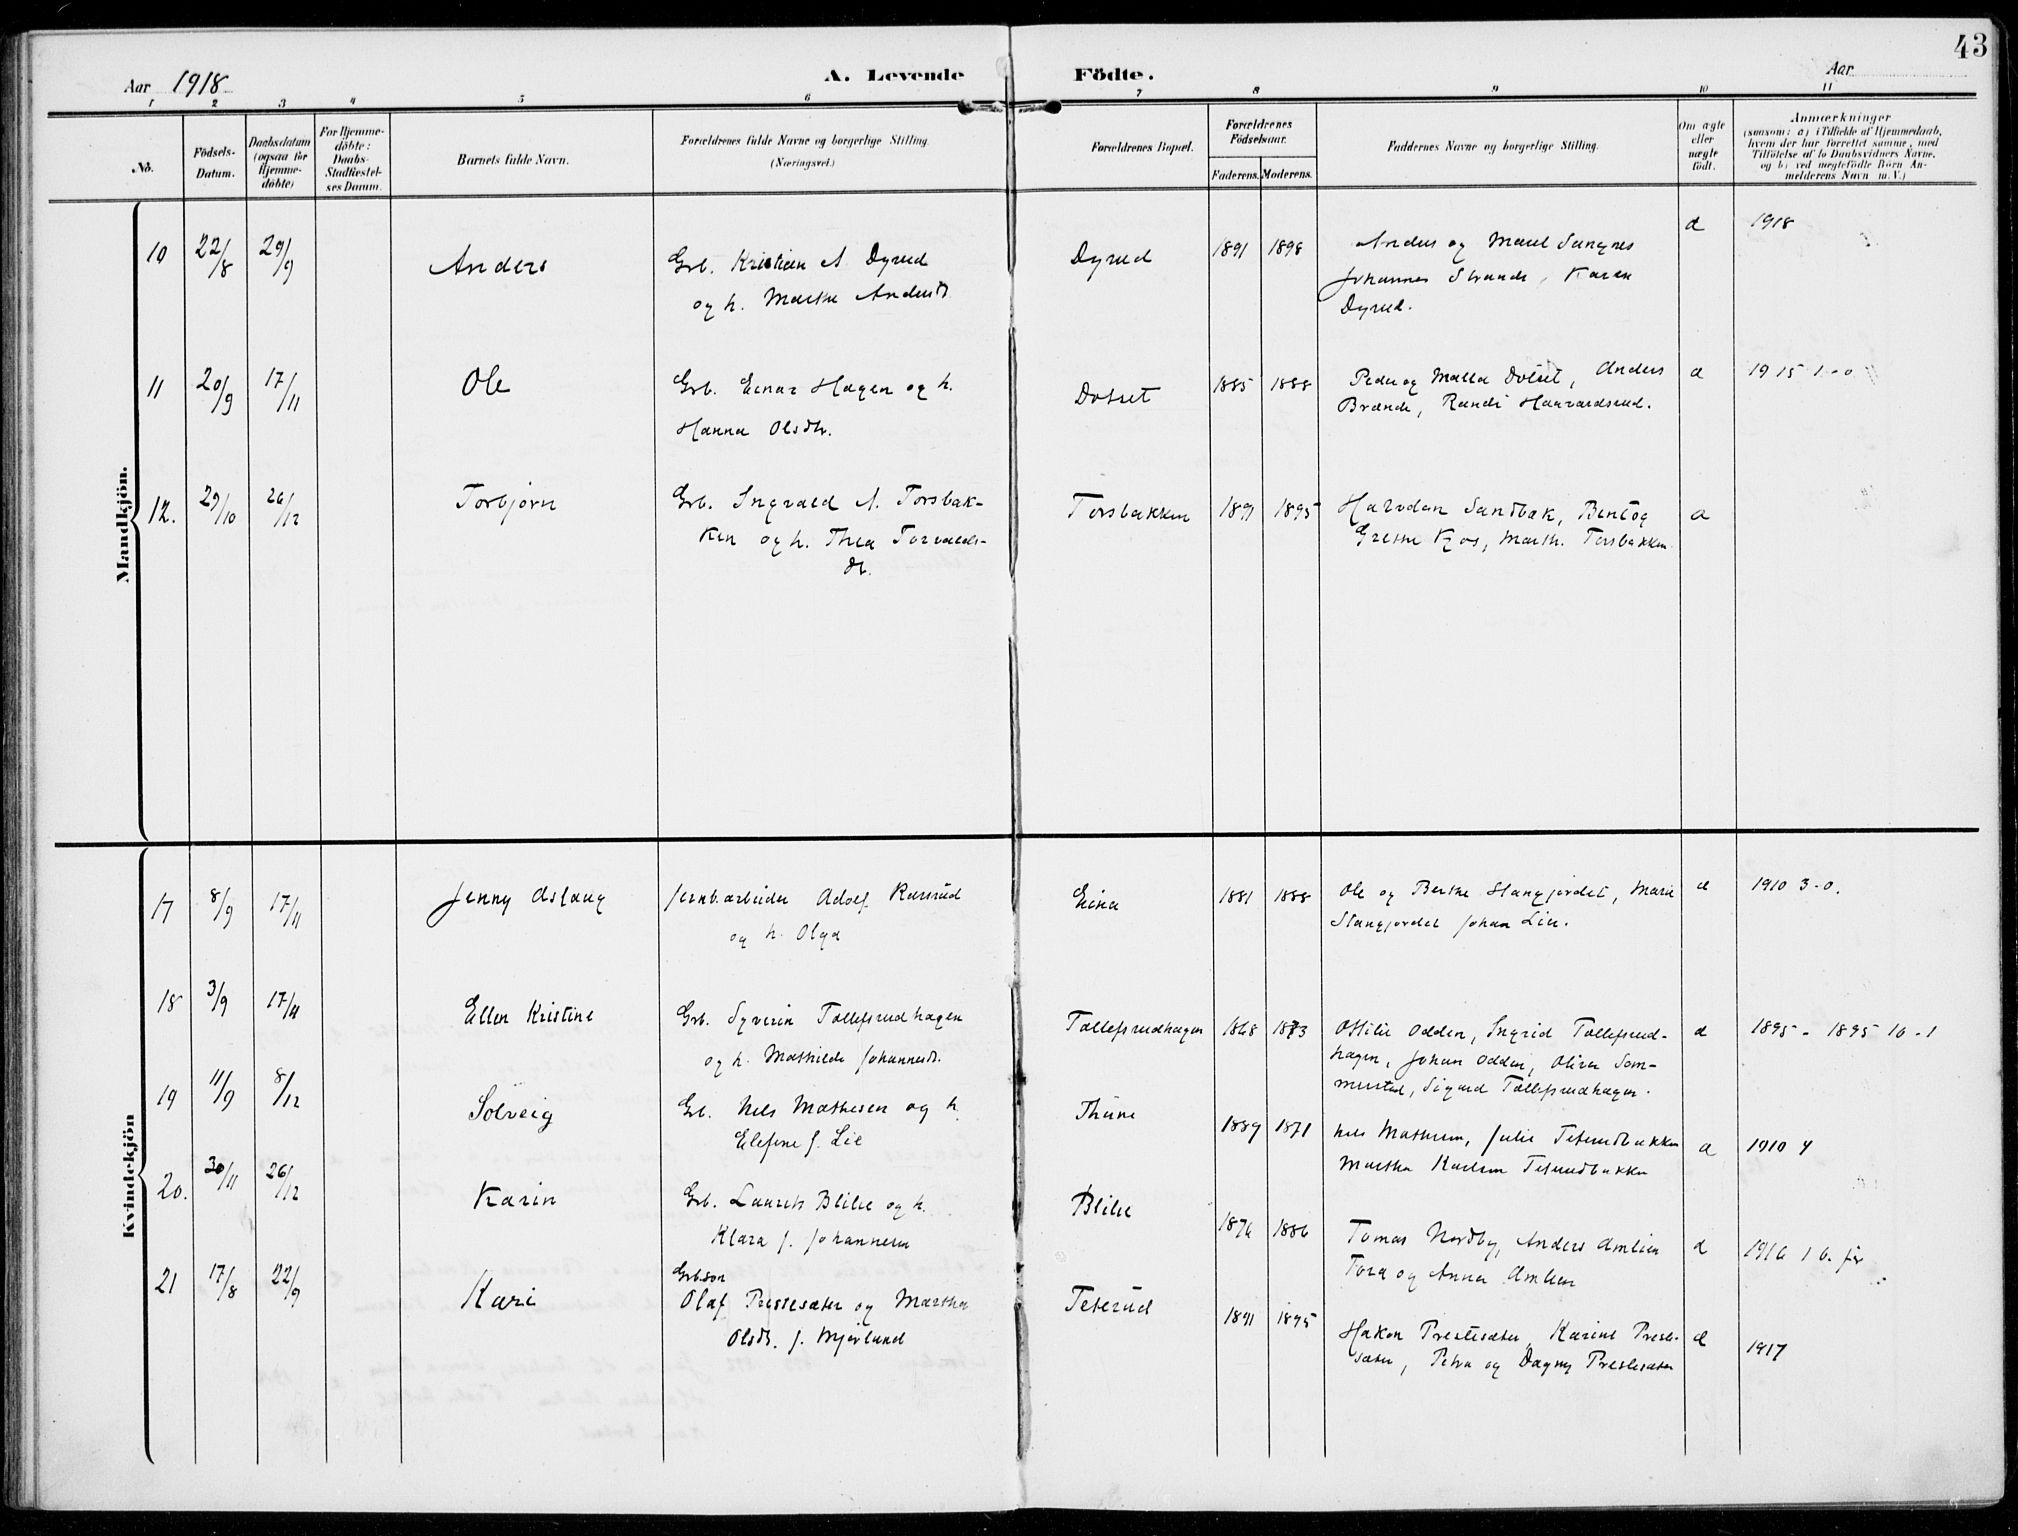 43
Aar 1918
A. Levende Födte.
Aar
1 2 3 4 5 6 7 8 9 10 11
No.
Födsels-
Datum.
Daabsdatum
(ogsaa for
Hjemme-
döbte)
For Hjemme-
döbte:
Daabs-
Stadfæstel-
ses Datum.
Barnets fulde Navn.
Forældrenes fulde Navne og borgerlige Stilling.
(Næringsvei.)
Forældrenes Bopæl.
Forældrenes
Födselsaar.
Faderens. Moderens.
Faddernes Navne og borgerlige Stilling.
Om ægte
eller
uægte
födt.
Anmærkninger
(saasom: a) i Tilfælde af Hjemmedaab,
hvem der har forrettet samme, med
Tilföielse af to Daabsvidners Navne,
og b) ved uægtefödte Börn An-
melderens Navn m. V.)
Mandkjön.
10 22/8 29/9 Anders
Grb. Kristian A. Dyrud
og h. Marthe Andersd.
Dyrud 1891 1898
Anders og
Johannes Strande, Karen
Dyrud.
æ 1918
11 20/9 17/11 Ole
Grb. Einar Hagen og h.
Hanna Olsdtr.
Dotset 1885 1888
Peder og Malla Dotset, Anders
Brænde, Randi Haavardsrud.
æ 1915 1-0
12. 29/10 26/12 Torbjørn
Grb. Ingvald A. Torsbak-
ken og h. Thea Torvalds-
dt.
Torsbakken 1891 1895
Halvdan Sandbak, Bent og
Grethe Kjos, Marth. Torsbakken.
æ
Kvindekjön
17 8/9 17/11 Jenny Aslaug
Jernb.arbeider Adolf
og h. Olga
Eina 1881 1888
Ole og Berthe Stangjordet, Marie
Stangjordet Johan Lie.
æ 1910 3-0.
18 3/9 17/11 Ellen Kristine
Grb. Syverin Tollefsrudhagen
og h. Mathilde Johannesd.
Tollefsrudhagen 1868 1873
Ottilie Odden, Ingrid Tollefsrud-
hagen, Johan Odden, Oliver Som-
merstad, Sigurd Tollefsrudhagen.
æ 1895 - 1895 10-1
19 11/9 8/12 Solveig
Grb. Nels Mathesen og h.
Elefine f. Lie
Thune 1889 1871
Nels Mathesen, Julie Teterudbakken
Martha Karlsen Teterudbakken
æ 1910 4
20. 30/11 26/12 Karin
Grb. Laurits Blilie og h.
Klara f. Johannesen
Blilie 1876 1886
Tomas Nordby, Anders Amlien
Tora og Anna Amlien
æ 1916 1 b. før
21 17/8 22/9 Kari
Grb.søn
Olaf Prestesæter og Martha
Olsdt. f. Bjerlund
Teterud 1891 1895
Hakon Prestesæter, Karine Preste-
sæter, Petra og Dagny Prestesæter
æ 1917